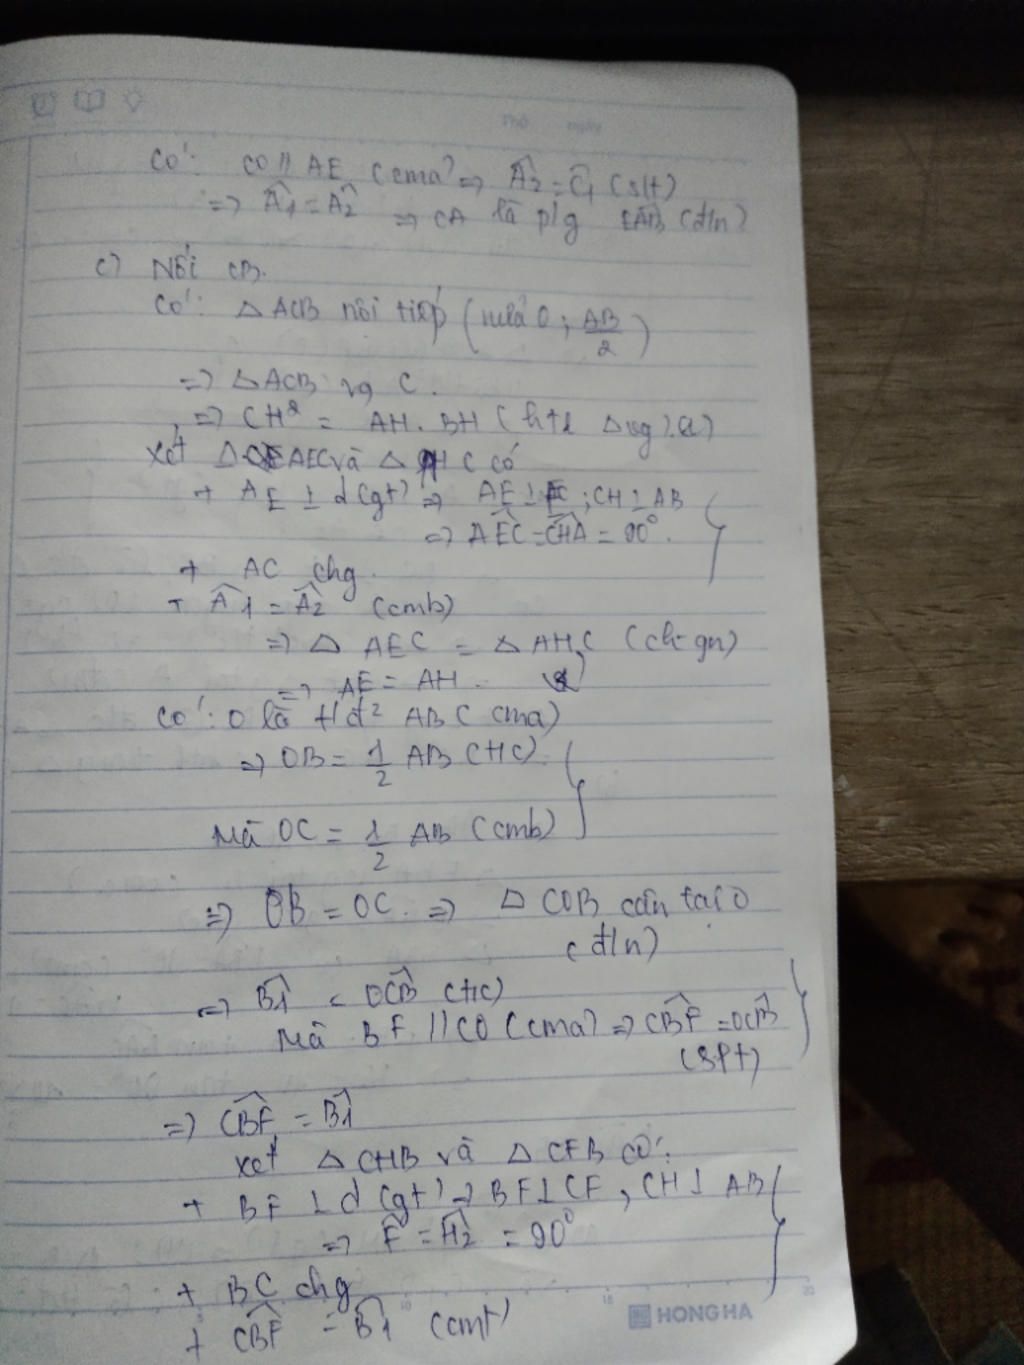 Thứ ngày
Có: CO // AE (cma) => Â2 = Ĉ1 (slt)
=> Â1 = Â2 => CA là p/g EÂB (đ/n)
c) Nối CB.
Có: △ ACB nội tiếp (nửa O; AB/2)
=> △ACB vg C.
=> CH² = AH. BH (htl △vg)
Xét △ AEC và △ AHC có
+ AE ⊥ d (gt) => AE ⊥ EC ; CH ⊥ AB
=> AÊC = CĤA = 90°.
+ AC chg.
+ Â1 = Â2 (cmb)
=> △ AEC = △ AHC (ch-gn)
=> AE = AH.
Có: O là t/đ² AB (cma)
=> OB = 1/2 AB (t/c).
Mà OC = 1/2 AB (cmb)
=> OB = OC. => △ COB cân tại O
(đ/n)
=> B̂1 = OĈB (t/c)
Mà BF // CO (cma) => CB̂F = OĈB
(slt)
=> CB̂F = B̂1
Xét △ CHB và △ CFB có:
+ BF ⊥ d (gt) => BF ⊥ CF, CH ⊥ AB
=> F̂ = Ĥ2 = 90°
+ BC chg
+ CB̂F = B̂1 (cmt)
5 10 15 20
HONG HA